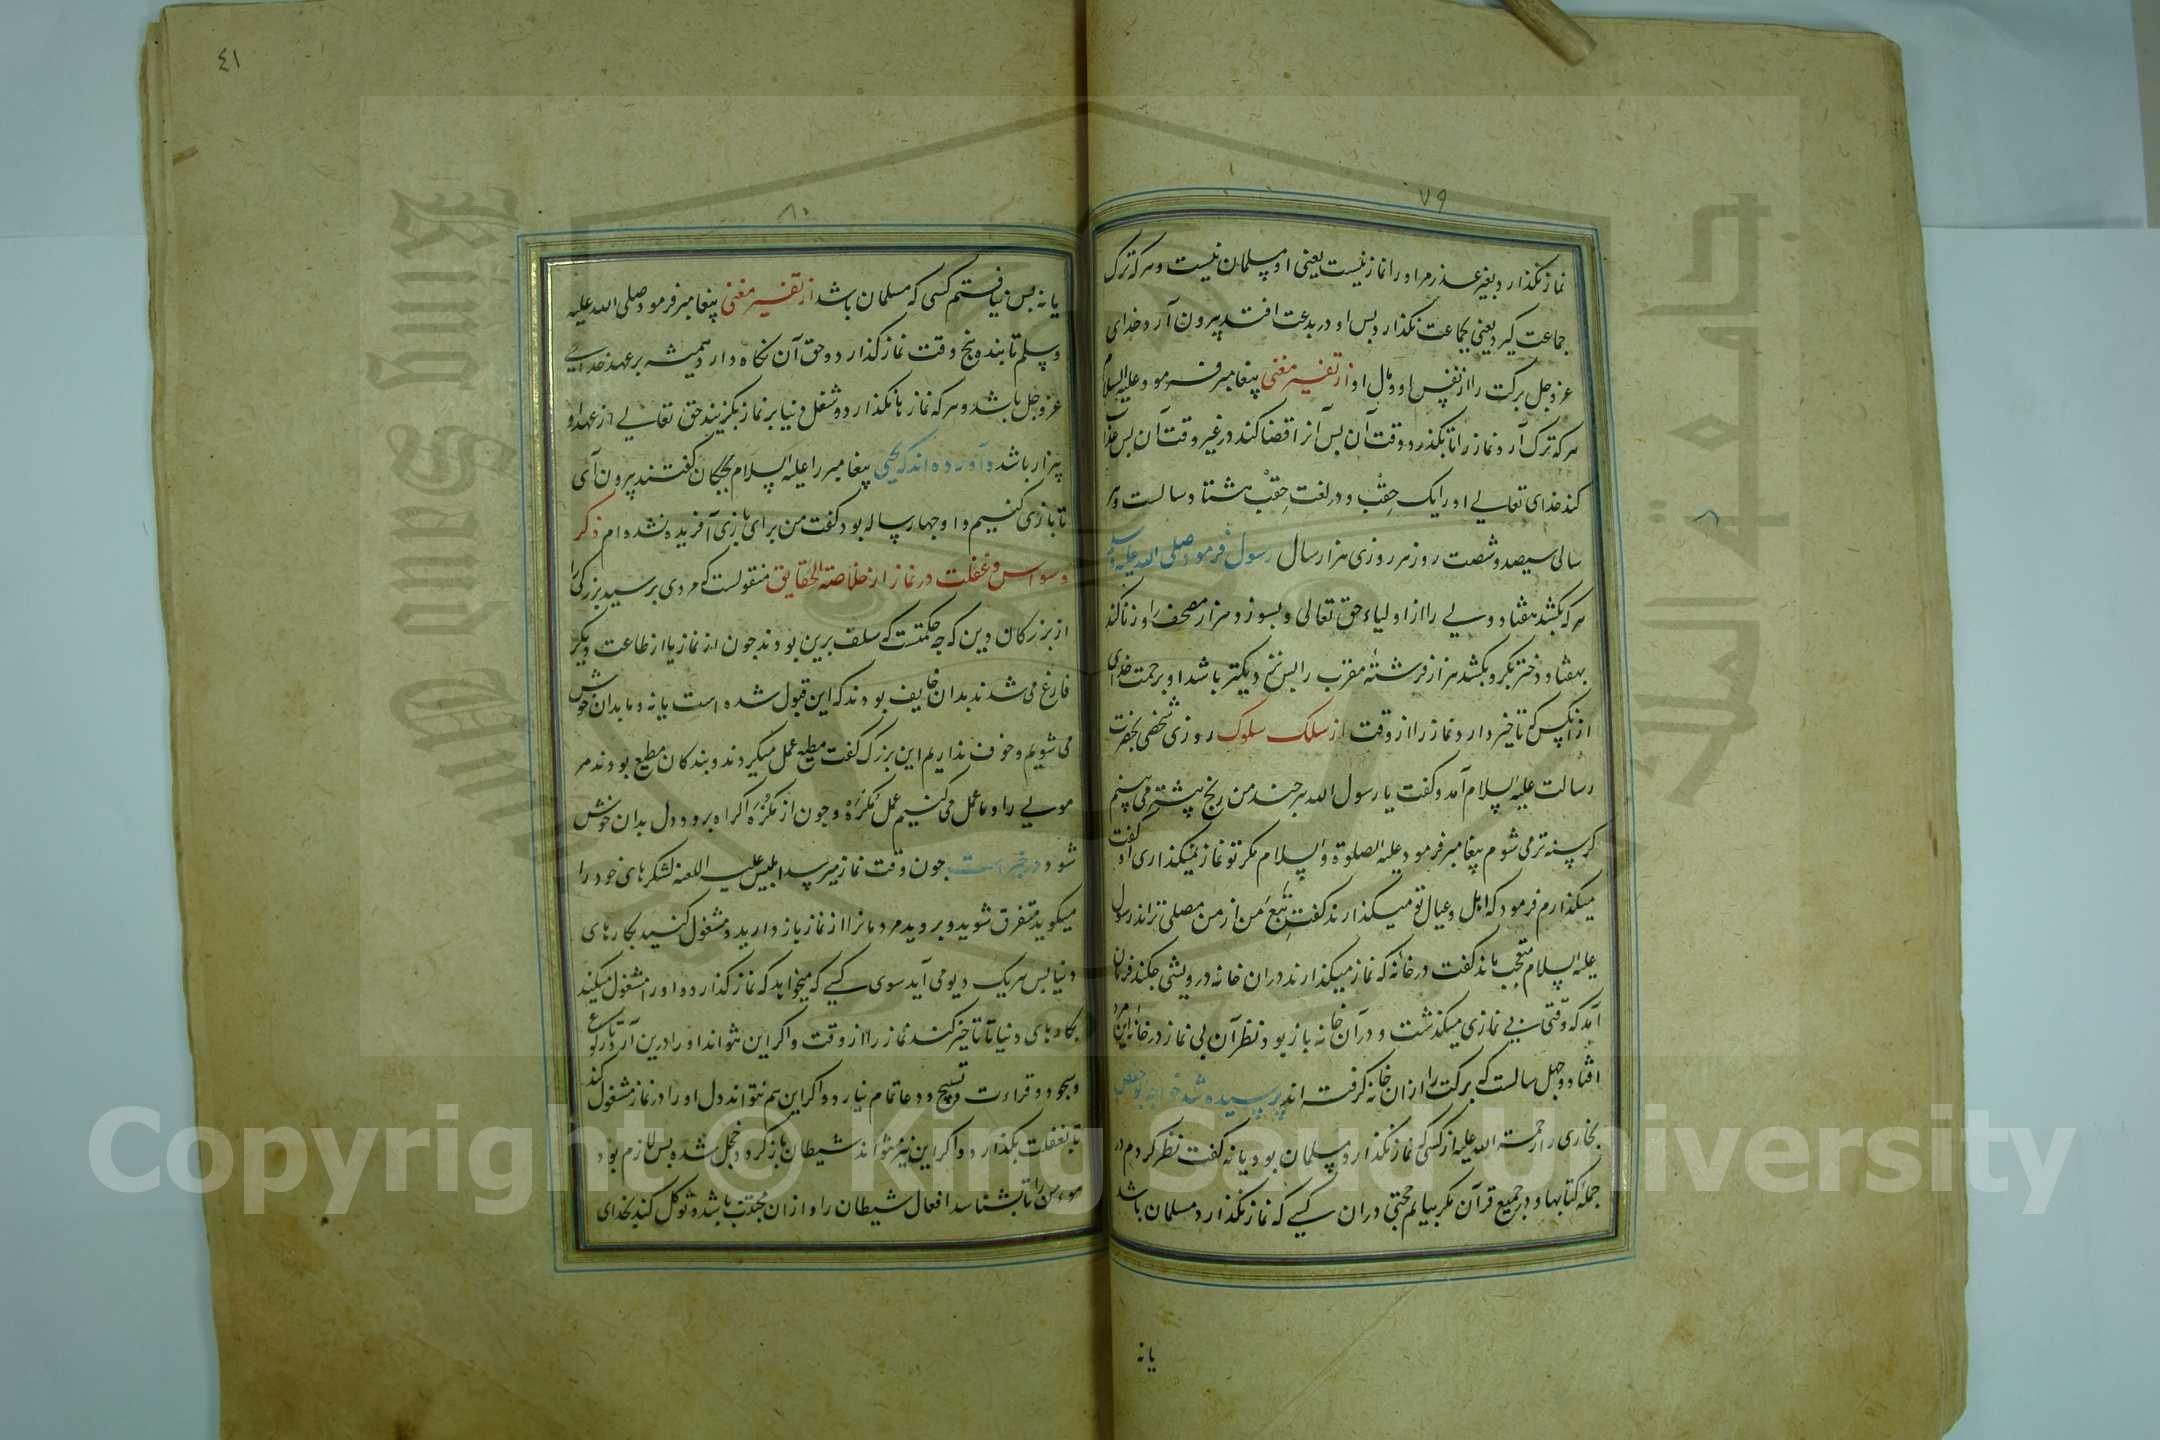 ٧٩
نماز نکذارد بغیر عذر مر او را نماز نیست یعنی او مسلمان نیست و هر که ترک
جماعت کیرد یعنی بجماعت نکذارد بس او در بدعت افتد بیرون آرد خدای
عز و جل برکت را از نفس او و مال او از تفسیر مغنی پیغامبر فرمود علیه السلام
هر که ترک آرد نماز را تا بکذرد وقت آن بس آنرا قضا کند در غیر وقت آن بس عذاب
کند خدای تعالی او را یک حِقَب و در لغت حِقَب هشتاد سالست و هر
سالی سیصد و شصت روز هر روزی هزار سال رسول فرمود صلی الله علیه وسلم
هر که بکشد هفتاد ولی را از اولیاء حق تعالی و بسوزد هزار مصحف را و زنا کند
بهفتاد دختر بکر و بکشد هزار فرشتهٔ مقرب را بس نزدیکتر باشد او برحمت خدای
از آنکس که تاخیر دارد نماز را از وقت از سلک سلوک روزی شخصی بحضرت
رسالت علیه السلام آمد و کفت یا رسول الله هر چند من رنج بیشتر می بینم
کرسنه تر می شوم پیغامبر فرمود علیه الصلوة والسلام مکر تو نماز نمیکذاری او کفت
میکذارم فرمود که اهل و عیال تو میکذارند کفت تبع من از من مصلی تراند رسول
علیه السلام متعجب ماند کفت در خانهٔ که نماز میکذارند در ان خانه درویشی جکند فرمان
آمد که وقتی بی نمازی میکذشت و در آن خانه باز بود نظر آن بی نماز در خانهٔ این مرد
افتاد و جهل سالست که برکت را از ان خانه کرفته اند پرسیده شد خواجه بوحفص
بخاری را رحمة الله علیه از کسی که نماز نکذارد مسلمان بود یا نه کفت نظر کردم در
جمله کتابها و در جمیع قرآن مکر بیابم حجتی در ان کسی که نماز نکذارد مسلمان باشد
یا نه
٤١
٨٠
یا نه بس نیافتم کسی که مسلمان باشد از تفسیر مغنی پیغامبر فرمود صلی الله علیه
وسلم تا بنده پنج وقت نماز کذارد و حق آن نکاه دارد همیشه بر عهد خدای
عز و جل باشد و هر که نمازها نکذارد و شغل دنیا بر نماز بکزیند حق تعالی از عهد او
بیزار باشد و آورده اند که یحیی پیغامبر را علیه السلام بجکان کفتند بیرون آی
تا بازی کنیم و او جهار ساله بود کفت من برای بازی آفریده نشده ام ذکر
وسواس و غفلت در نماز از خلاصة الحقایق منقولست که مردی برسید بزرکی را
از بزرکان دین که جه حکمتست که سلف برین بودند جون از نماز یا از طاعت دیکر
فارغ می شدند بدان خایف بودند که این قبول شده است یا نه و ما بدان خوش
می شویم و خوف نداریم این بزرک کفت مطیع عمل میکردند و بندکان مطیع بودند مر
مولی را و ما عمل می کنیم عمل مُکرَه و جون از مُکرَه اکراه برود دل بدان خوش
شود در خبر است جون وقت نماز میرسد ابلیس علیه اللعنه لشکرهای خود را
میکوید متفرق شوید و بروید مردمانرا از نماز باز دارید و مشغول کنید بکارهای
دنیا بس هر یک دیو می آید سوی کسی که میخواهد که نماز کذارد و او را مشغول میکند
بکارهای دنیا تا تاخیر کند نماز را از وقت و اکر این نتواند او را درین آرد تا رکوع
و سجود و قراءت و تسبیح و دعا تمام نیارد و اکر این هم نتواند دل او را در نماز مشغول کند
تا بغفلت بکذارد و اکر این نیز نتواند شیطان باز کردد خجل شده بس لازم بود
مومن را تا بشناسد افعال شیطان را و از ان مجتنب باشد و توکل کند بخدای
Copyright © King Saud University
King Saud University